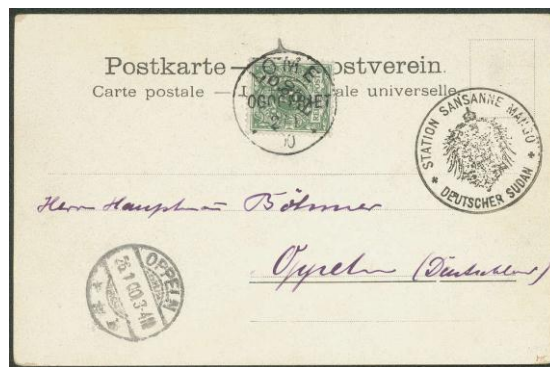 Postkarte — ostverein.
Carte postale — L ale universelle.
LOME
OGOGEBIET
STATION SANSANNE MANGO
* DEUTSCHER SUDAN *
Herrn Hauptmann Böhmer
Oppeln (Deutschland)
OPPELN
26.1.00.3-4N